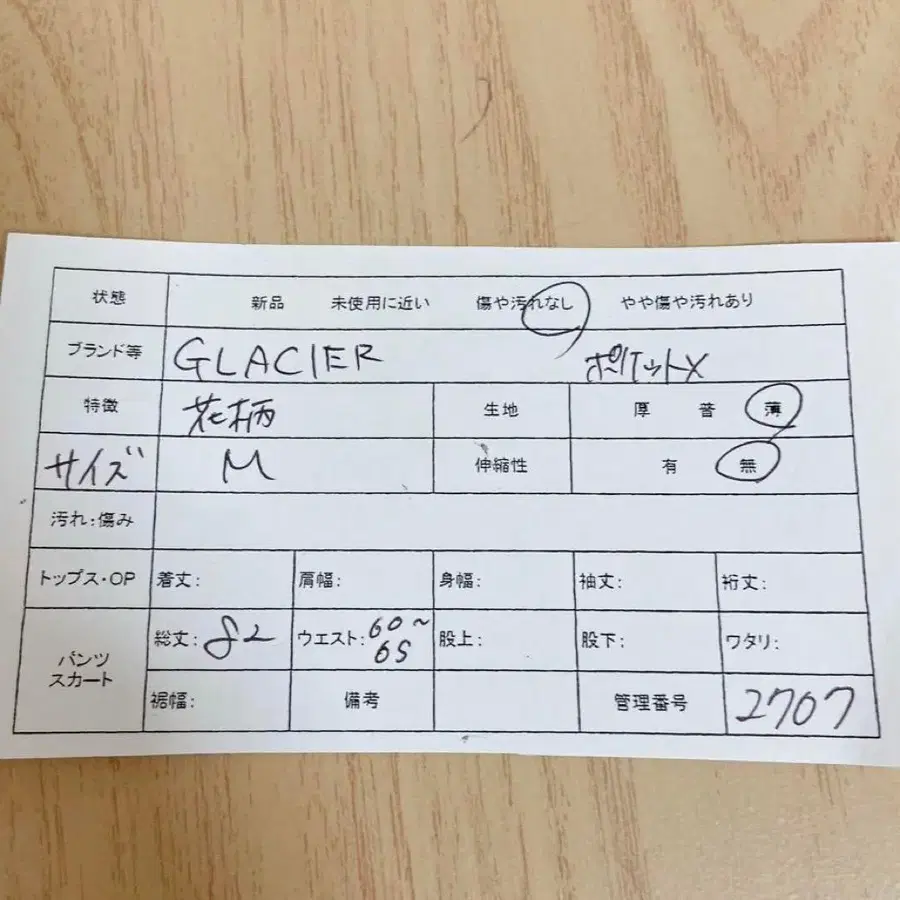 状態 新品 未使用に近い 傷や汚れなし やや傷や汚れあり
ブランド等 GLACIER ポケット×
特徴 花柄 生地 厚 普 薄
サイズ M 伸縮性 有 無
汚れ:傷み
トップス・OP 着丈: 肩幅: 身幅: 袖丈: 裄丈:
パンツ スカート
総丈: 82 ウエスト: 60~ 65 股上: 股下: ワタリ:
裾幅: 備考 管理番号 2707